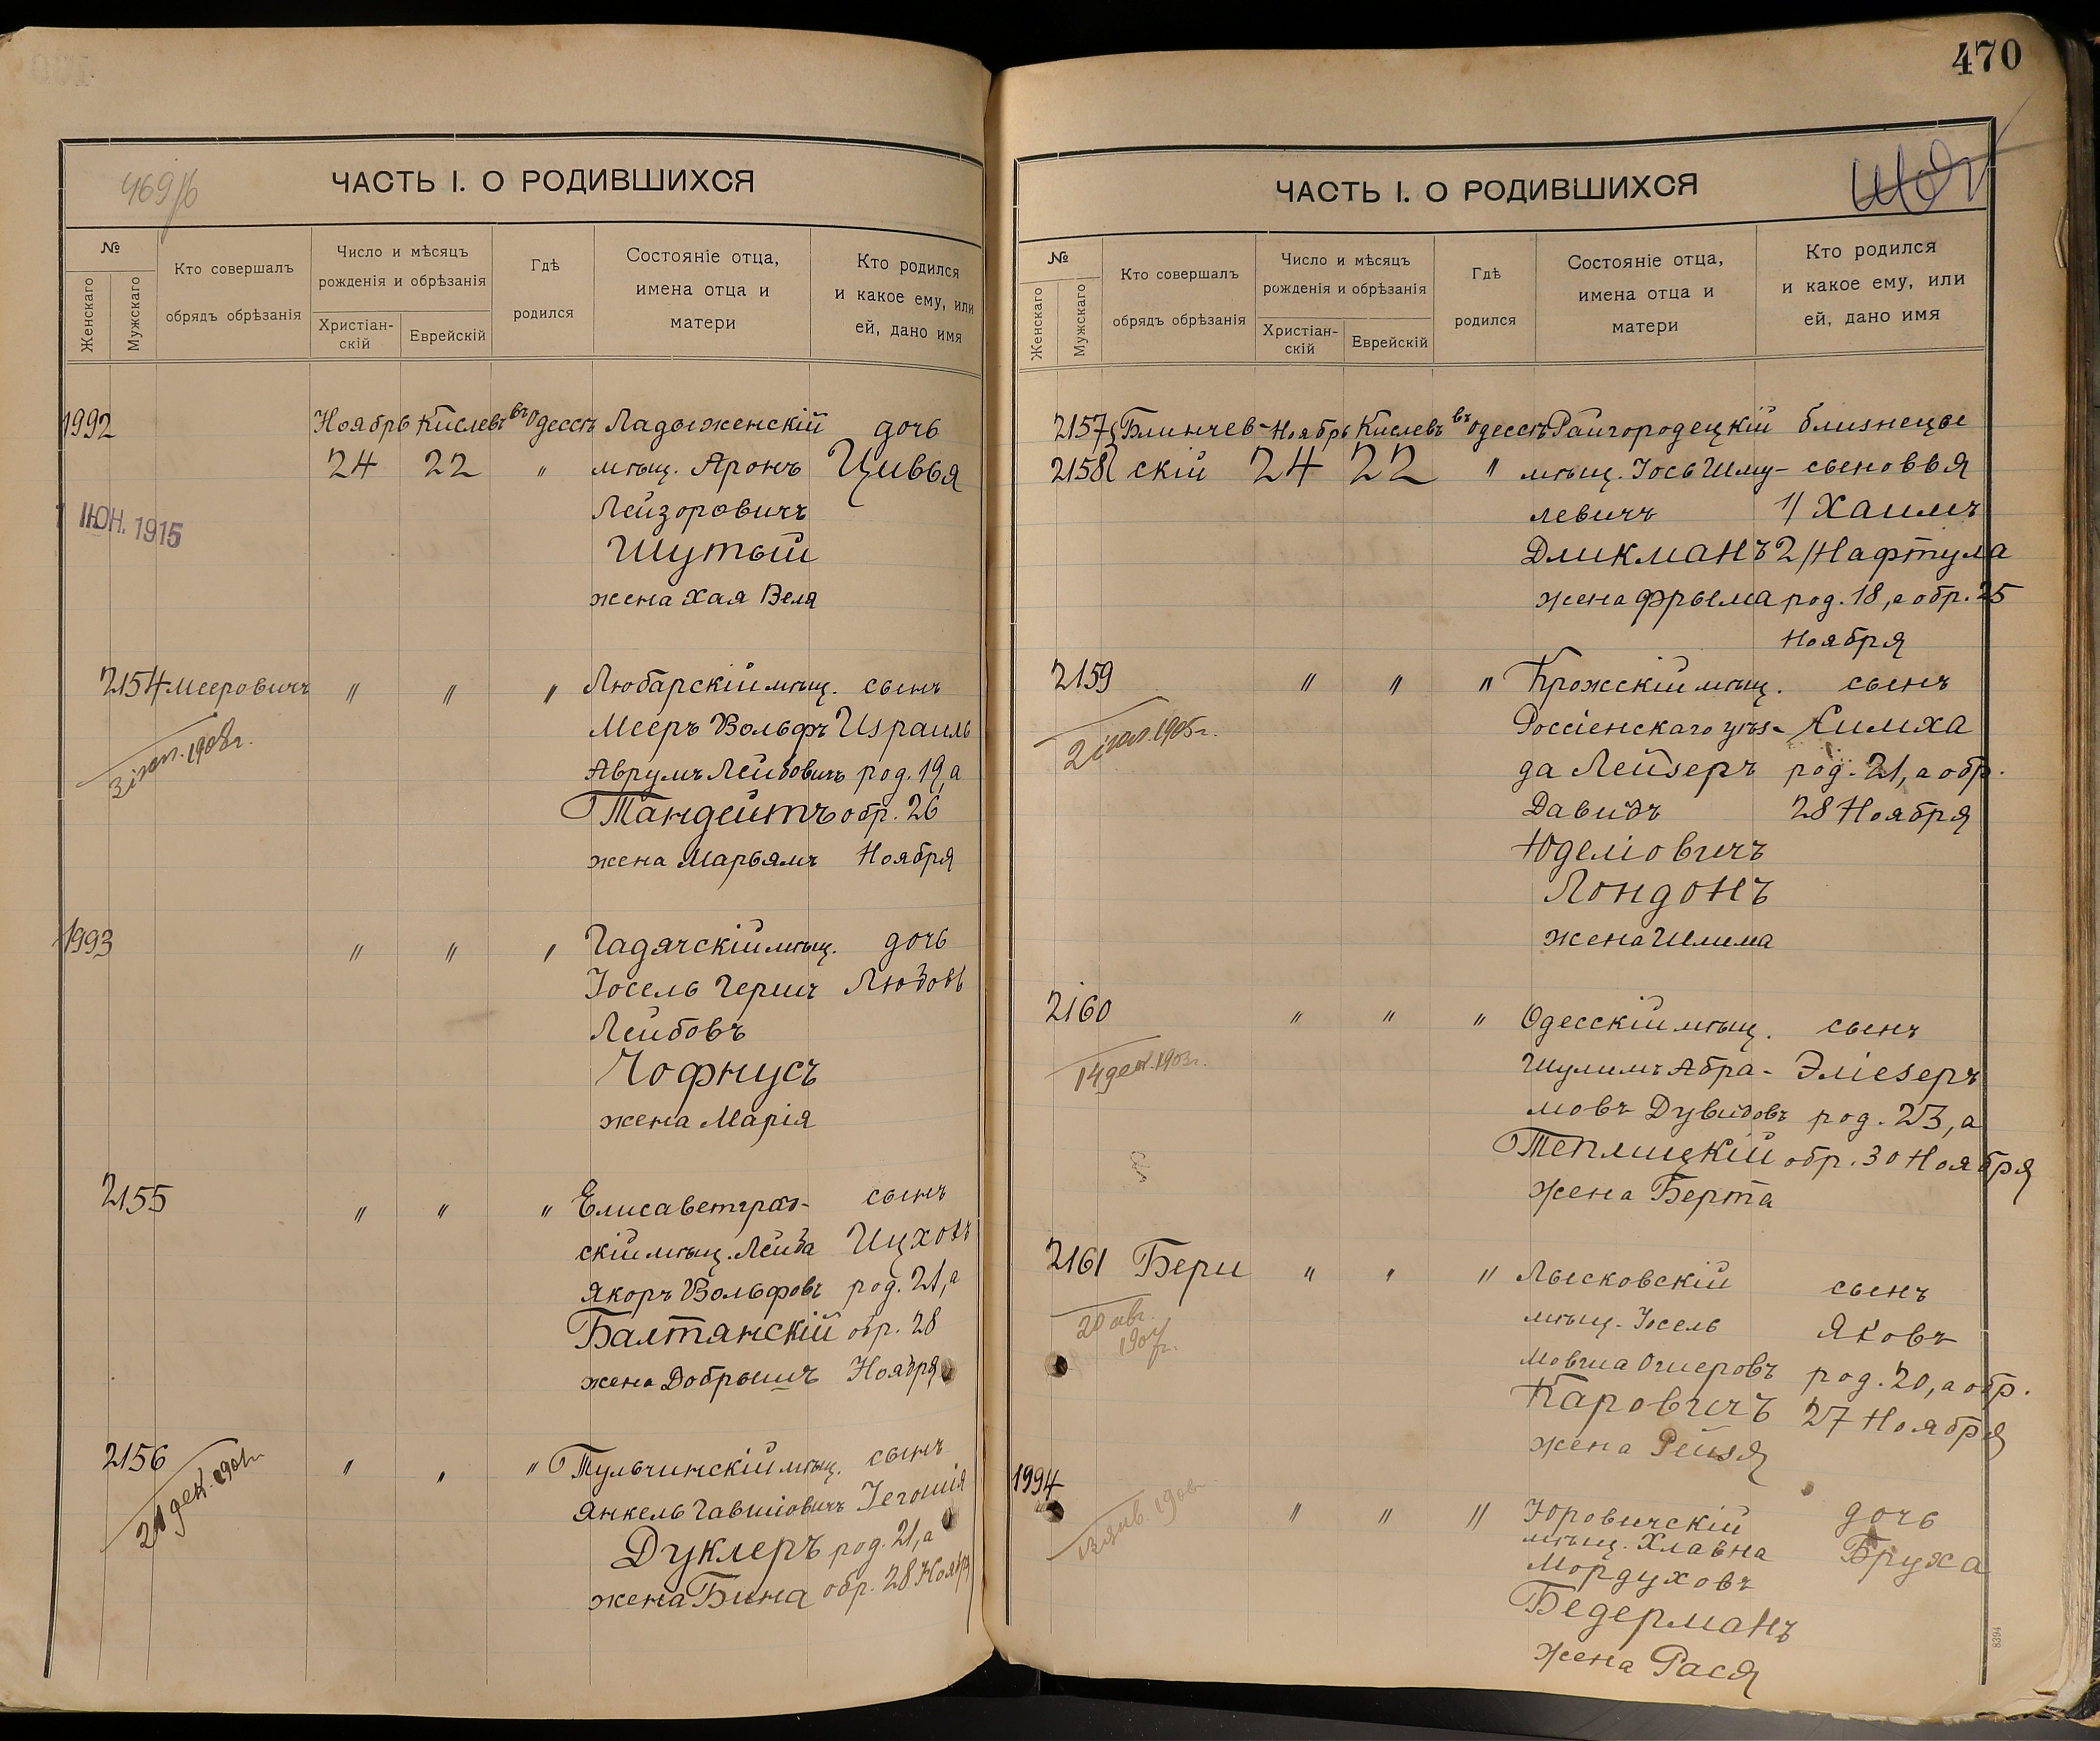 470
469/б
ЧАСТЬ I. О РОДИВШИХСЯ
№
Женскаго
Мужскаго
Кто совершалъ
обрядъ обрѣзанія
Число и мѣсяцъ
рожденія и обрѣзанія
Христіан-
скій
Еврейскій
Гдѣ
родился
Состояніе отца,
имена отца и
матери
Кто родился
и какое ему, или
ей, дано имя
1992 Ноябрь Кислевъ въ Одессѣ Ладыженскій дочь
24 22 " мѣщ. Аронъ Цивья
Лейзоровичъ
ІЮН. 1915
Шутый
жена Хая Веля
2154 Мееровичъ " " " Любарскій мѣщ. сынъ
Мееръ Вольфъ Израиль
3 іюл. 1908г.
Аврумъ Лейбовичъ род. 19, а
Тандейтъ обр. 26
жена Марьямъ Ноября
1993 " " " Гадячскій мѣщ. дочь
Іосель Гершъ Любовь
Лейбовъ
Чофнусъ
жена Марія
2155 " " " Елисаветград- сынъ
скій мѣщ. Лейба Ицхокъ
Якоръ Вольфовъ род. 21, а
Балтянскій обр. 28
жена Добрышъ Ноября
2156 " " " Тульчинскій мѣщ. сынъ
Янкель Гавшіовичъ Іегошія
Дуклеръ род. 21, а
жена Бина обр. 28 Ноябр
ЧАСТЬ I. О РОДИВШИХСЯ
№
Женскаго
Мужскаго
Кто совершалъ
обрядъ обрѣзанія
Число и мѣсяцъ
рожденія и обрѣзанія
Христіан-
скій
Еврейскій
Гдѣ
родился
Состояніе отца,
имена отца и
матери
Кто родился
и какое ему, или
ей, дано имя
2157 Блинчев- Ноябрь Кислевъ въ Одессѣ Райгородецкій близнецы
2158 скій 24 22 " мѣщ. Іось Шму- сыновья
левичъ 1/ Хаимъ
Дликманъ 2/ Нафтула
жена Фрыма род. 18, а обр. 25
Ноября
2159 " " " Крожскій мѣщ. сынъ
Россіенскаго уѣз- Симха
2 іюл. 1905г.
да Лейзеръ род. 21, а обр.
Давидъ 28 Ноября
Юделіовичъ
Лондонъ
жена Шлима
2160 " " " Одесскій мѣщ. сынъ
14 дек. 1903г.
Шулимъ Абра- Эліезеръ
мовъ Дувидовъ род. 23, а
Теплицкій обр. 30 Ноября
жена Берта
2161 Бери " " " Лысковскій сынъ
20 авг.
1907г.
мѣщ. Іосель Яковъ
Мовша Ошеровъ род. 20, а обр.
Каровичъ 27 Ноября
жена Рейзя
1994 " " " Юровичскій дочь
мѣщ. Хлавна Бруха
Мордуховъ
Бедерманъ
жена Рася
8394